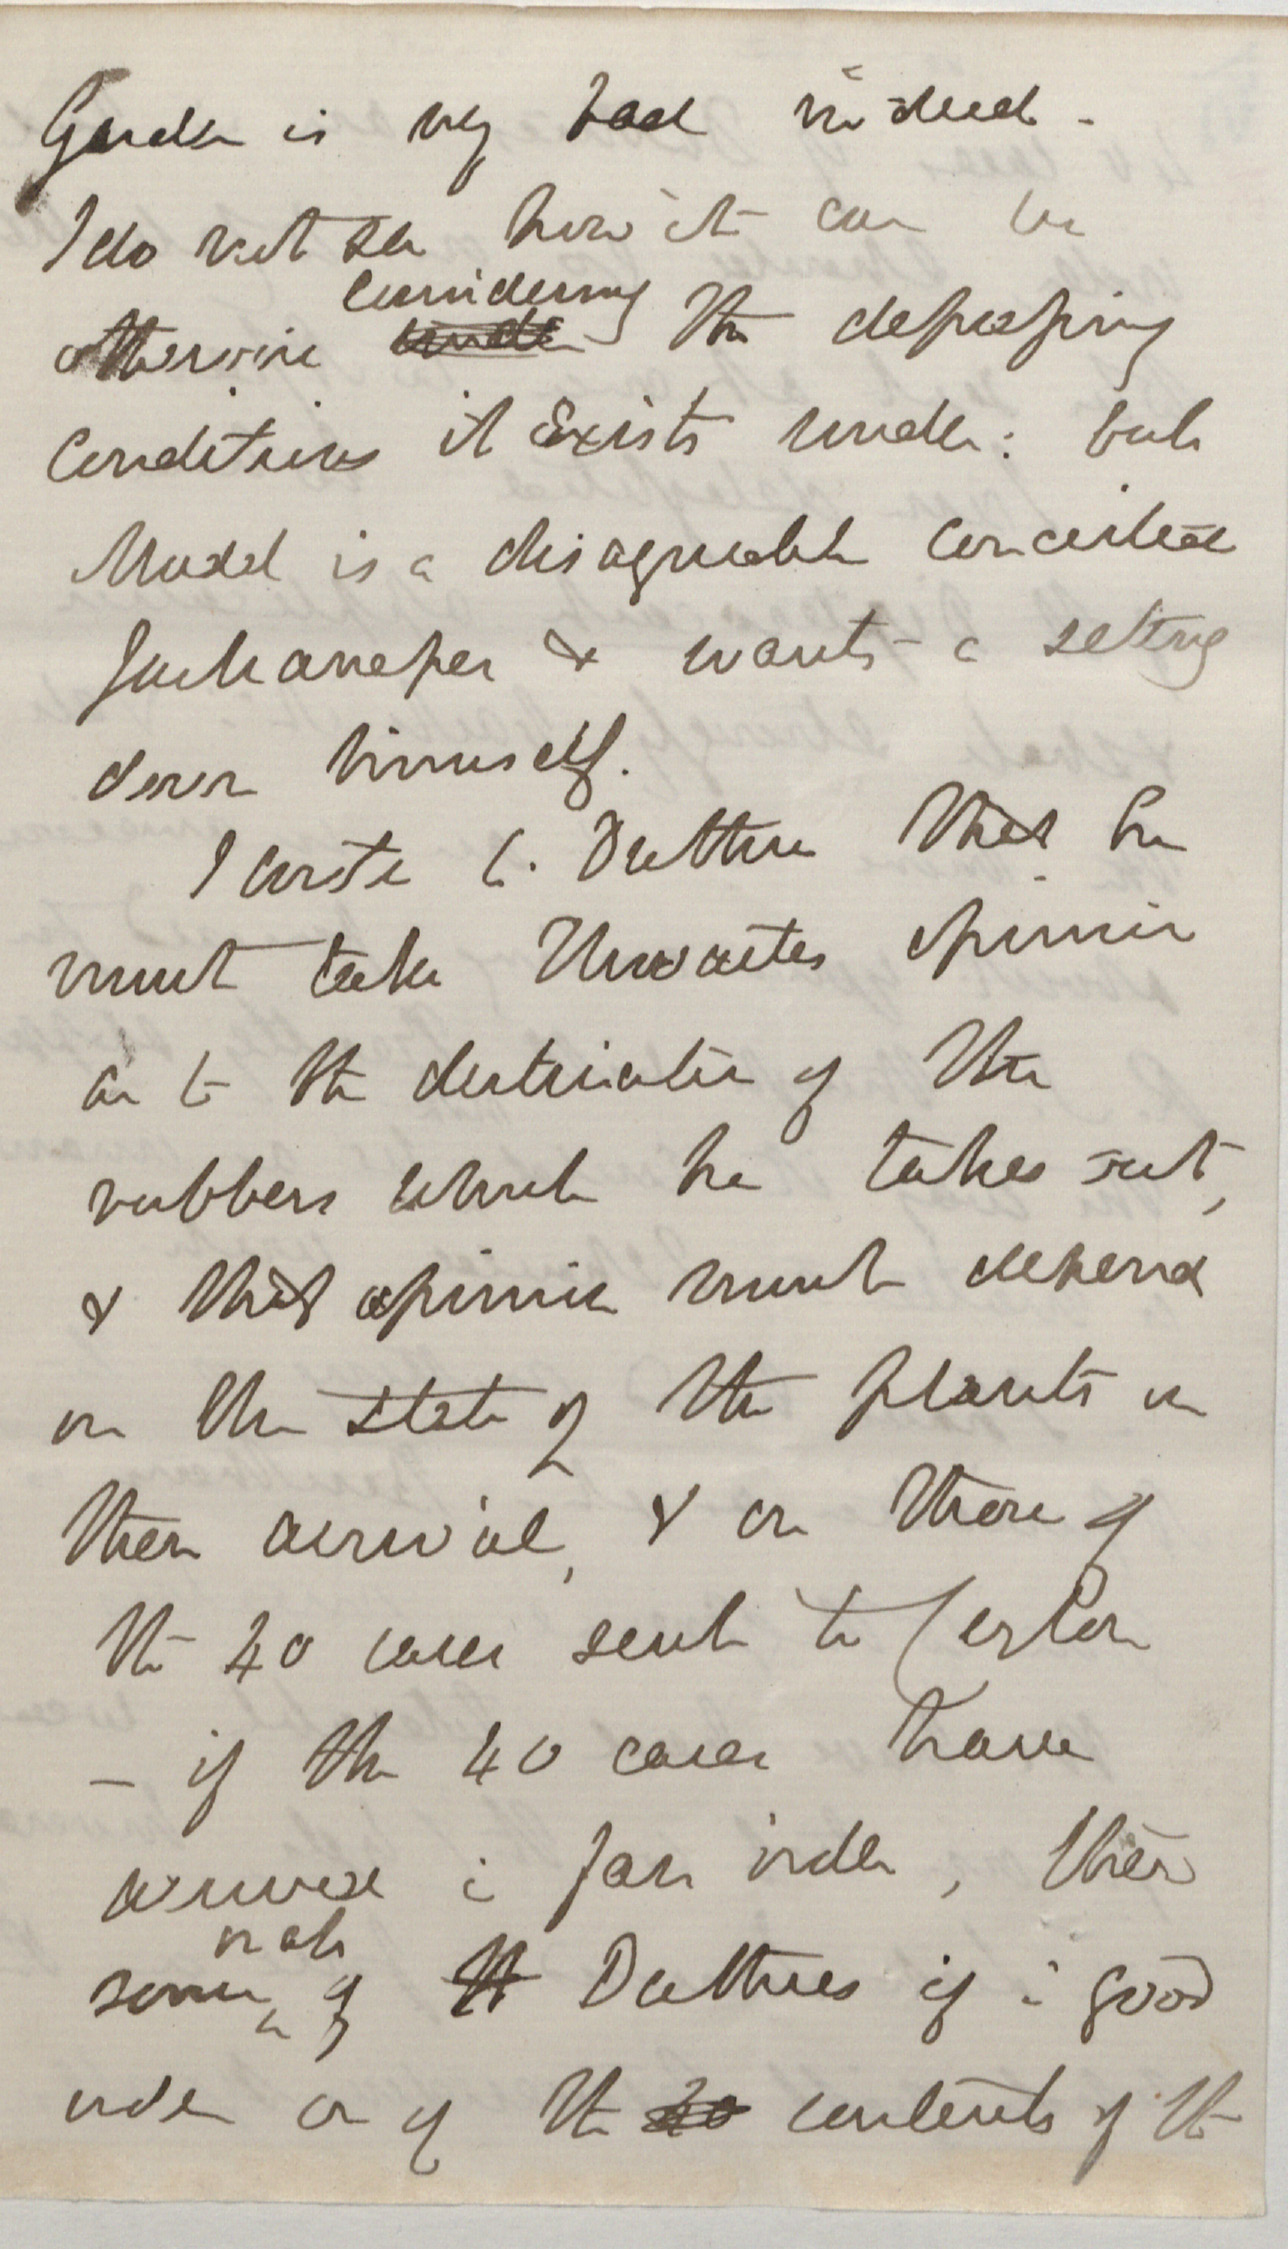 Garden is very bad indeed -
I do not see how it can be
considering
otherwise under the depressing
conditions it exists under: but
Mudd is a disagreeable conceited
Jackanapes & wants a setting
down himself.
I wrote to Duthie that he
must take Thwaites opinion
as to the destination of the
rubbers which he takes out,
& that opinion must depend
on the state of the plants on
their arrival, & on those of
the 40 cases sent to Ceylon
- if the 40 cases have
arrived in fair order, then
or all
some of th Duthies if in good
order or of the 40 contents of the